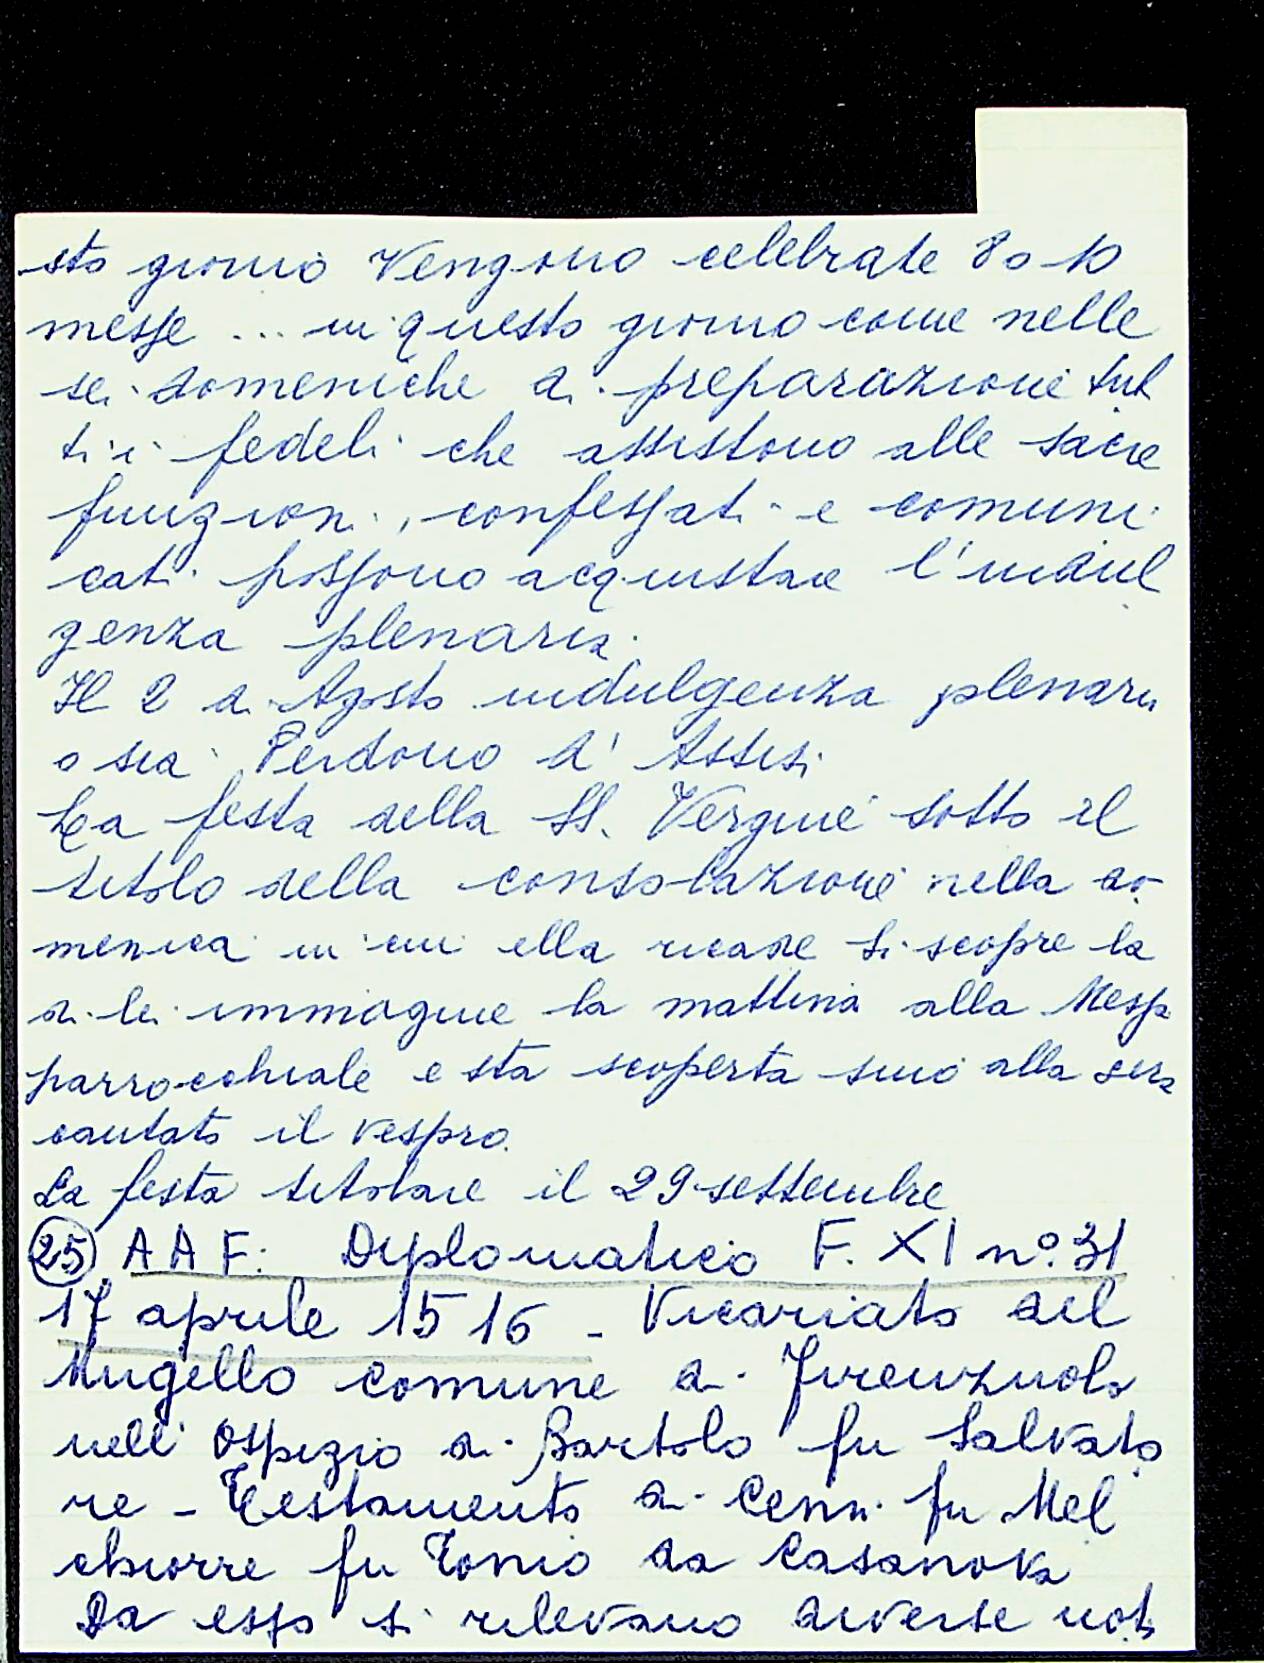 sto giorno vengono celebrate 8 o 10
messe ... in questo giorno come nelle
sei domeniche di preparazione tut
ti i fedeli che assistono alle sacre
funzioni, confessati e comuni
cati possono acquistare l'indul
genza plenaria.
Il 2 di Agosto indulgenza plenaria
o sia Perdono d'Assisi
La festa della SS. Vergine sotto il
titolo della consolazione nella do-
menica in cui ella ricade si scopre la
di lei immagine la mattina alla Messa
parrocchiale e sta scoperta sino alla sera
cantato il vespro.
La festa titolare il 29 settembre
25 AAF: Diplomatico F. XI n°. 31
17 aprile 1516 - Vicariato del
Mugello comune di Firenzuola
nell'ospizio di Bartolo fu Salvato
re - Testamento di Cenni fu Mel
chiorre fu Tonio da Casanova
Da esso si rilevano diverse noti